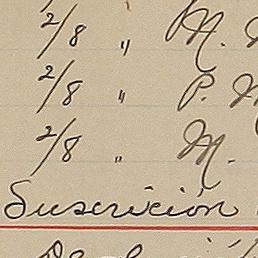 2/8 " M.
2/8 " P.
2/8 " M.
Suscricion